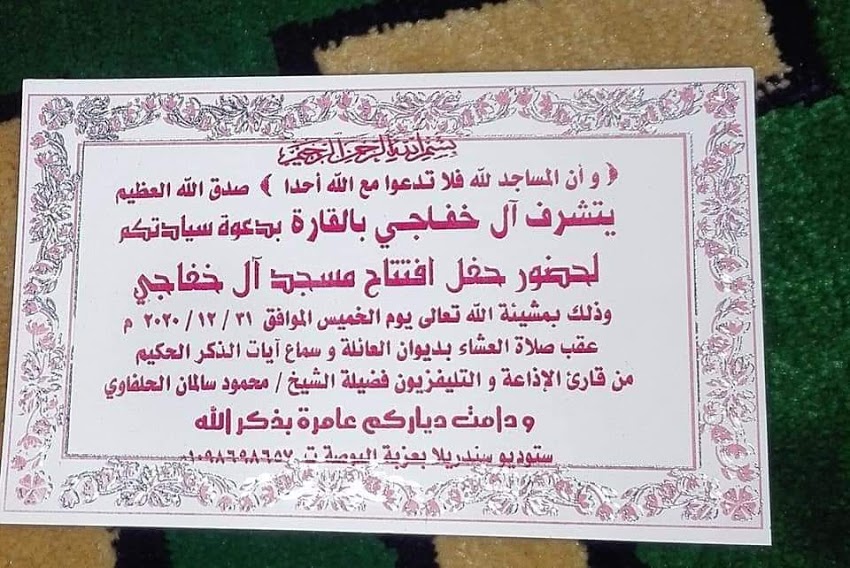 بسم الله الرحمن الرحيم
﴿ و أن المساجد لله فلا تدعوا مع الله أحدا ﴾ صدق الله العظيم
يتشرف آل خفاجي بالقارة بدعوة سيادتكم
لحضور حفل افتتاح مسجد آل خفاجي
وذلك بمشيئة الله تعالى يوم الخميس الموافق ٣١ / ١٢ / ٢٠٢٠ م
عقب صلاة العشاء بديوان العائلة و سماع آيات الذكر الحكيم
من قارئ الإذاعة و التليفزيون فضيلة الشيخ / محمود سالمان الحلفاوي
و دامت دياركم عامرة بذكر الله
ستوديو سندريلا بعزبة البوصة ت